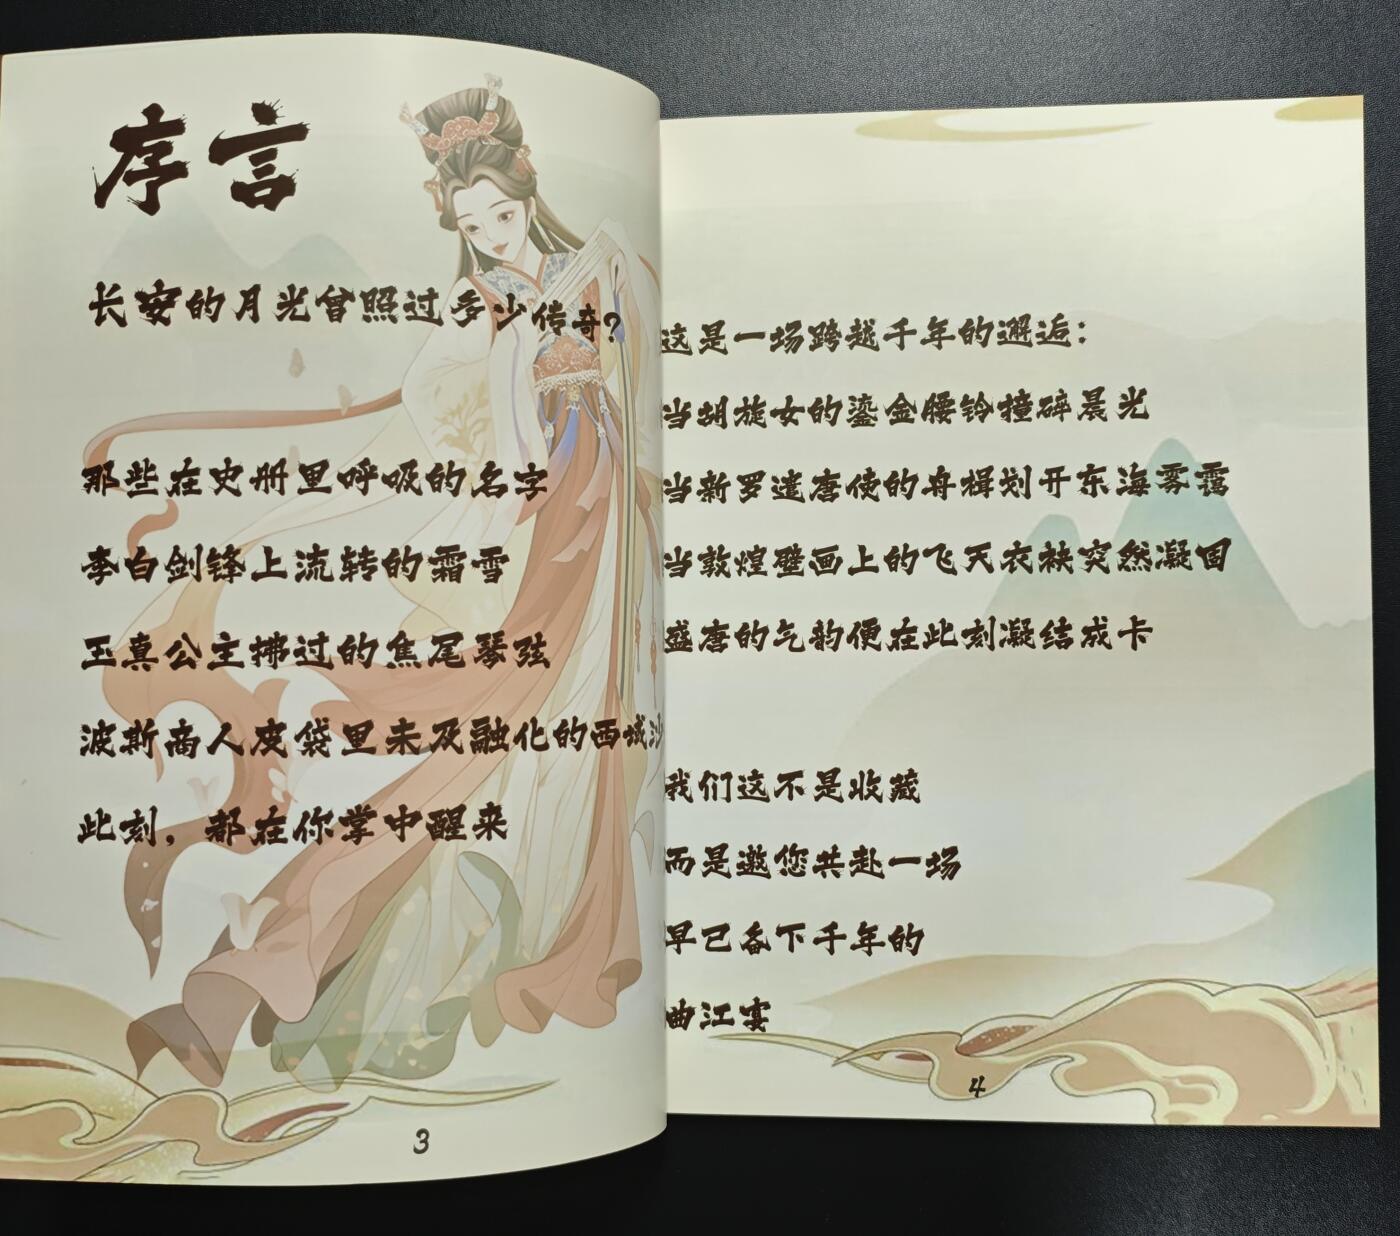 序言
长安的月光曾照过多少传奇?
那些在史册里呼吸的名字
李白剑锋上流转的霜雪
玉真公主拂过的焦尾琴弦
波斯商人皮袋里未及融化的西域沙
此刻，都在你掌中醒来
3
这是一场跨越千年的邂逅：
当胡旋女的鎏金腰铃撞碎晨光
当新罗遣唐使的舟楫划开东海雾霭
当敦煌壁画上的飞天衣袂突然凝固
盛唐的气韵便在此刻凝结成卡
我们这不是收藏
而是邀您共赴一场
早已备下千年的
曲江宴
4